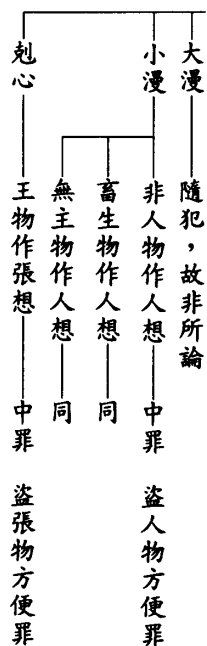 大漫 隨犯，故非所論
小漫 非人物作人想 中罪 盜人物方便罪
畜生物作人想 同
無主物作人想 同
剋心 王物作張想 中罪 盜張物方便罪